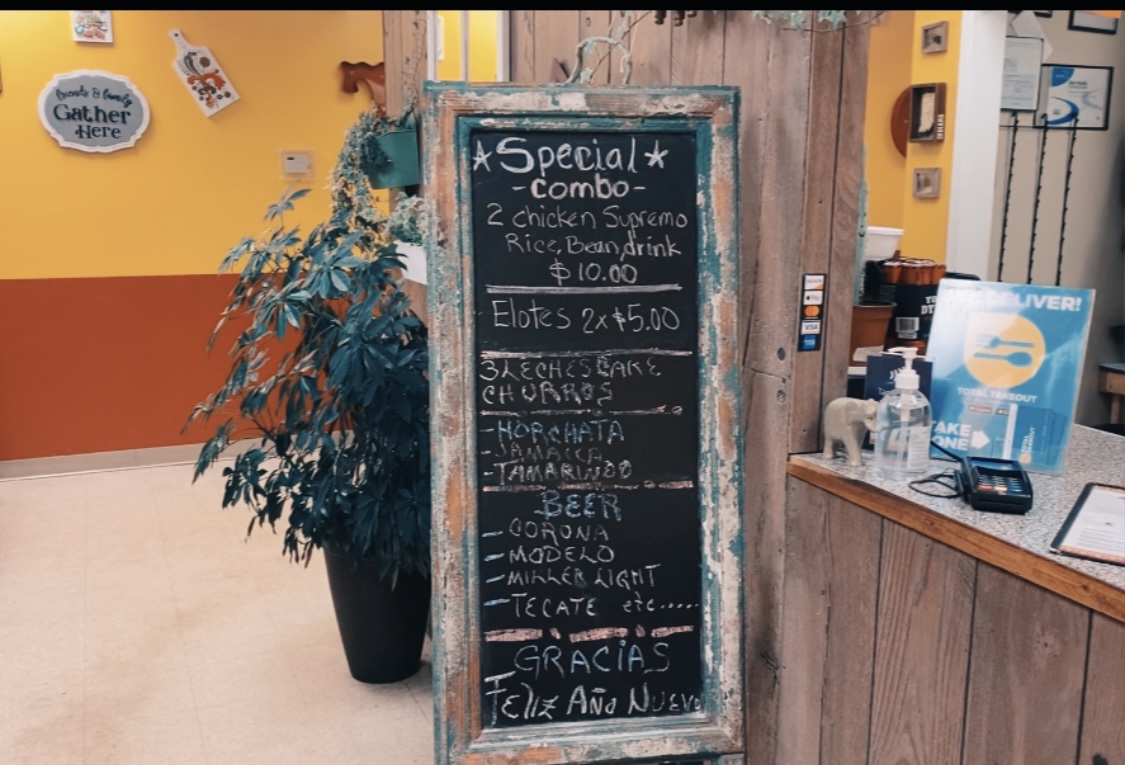 friends & family
Gather
Here
★Special★
-combo-
2 chicken Supremo
Rice, Bean, drink
$10.00
Elotes 2x$5.00
3LECHES CAKE
CHURROS
-HORCHATA
-JAMAICA
-TAMARINDO
BEER
-CORONA
-MODELO
-MILLER LIGHT
-TECATE etc.....
GRACIAS
FELIZ AÑO NUEVO
VISA
DELIVER!
TOTAL TAKEOUT
TAKE
ONE